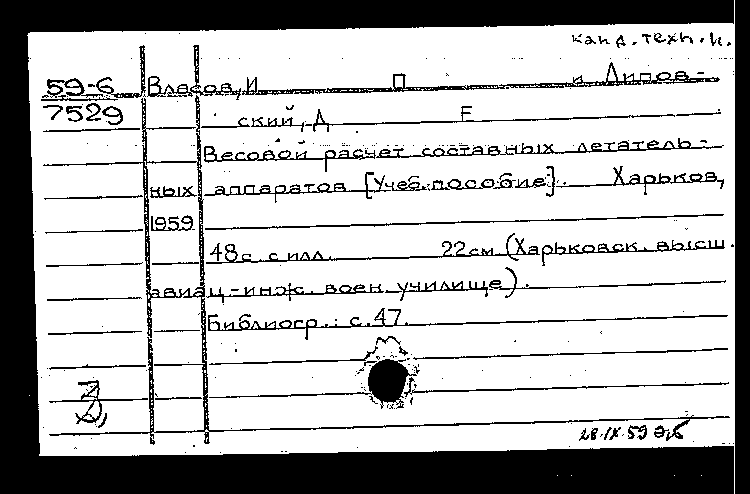 канд. техн. н.
59-6 Власов, И П и Липов-
7529 ский, Д Е
Весовой расчет составных летатель-
ных аппаратов [Учеб. пособие]. Харьков,
1959
48с. с илл. 22см (Харьковск. высш.
авиац-инж. воен. училище).
Библиогр.: с. 47.
28.IX.59